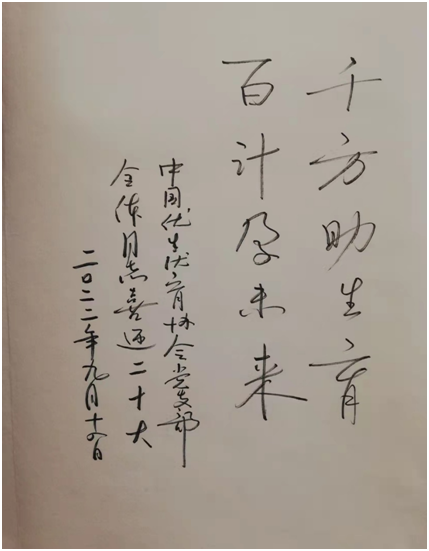 千方助生育
百计孕未来
中国优生优育协会党支部
全体同志喜迎二十大
二〇二二年九月十六日